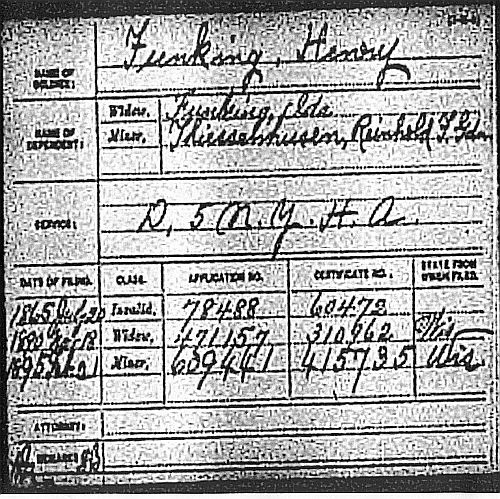 Funking, Henry
NAME OF SOLDIER:
NAME OF DEPENDENT:
Widow, Funking, Ida
Minor, Thiessenhusen, Reinhold F. Gdn
SERVICE: D, 5 N.Y. H. A.
DATE OF FILING. CLASS. APPLICATION NO. CERTIFICATE NO. STATE FROM WHICH FILED.
1865 July 20 Invalid, 78488 60473
1890 18 Widow, 471157 310962 Wis
1895 21 Minor, 609441 415735 Wis.
ATTORNEY:
REMARKS: